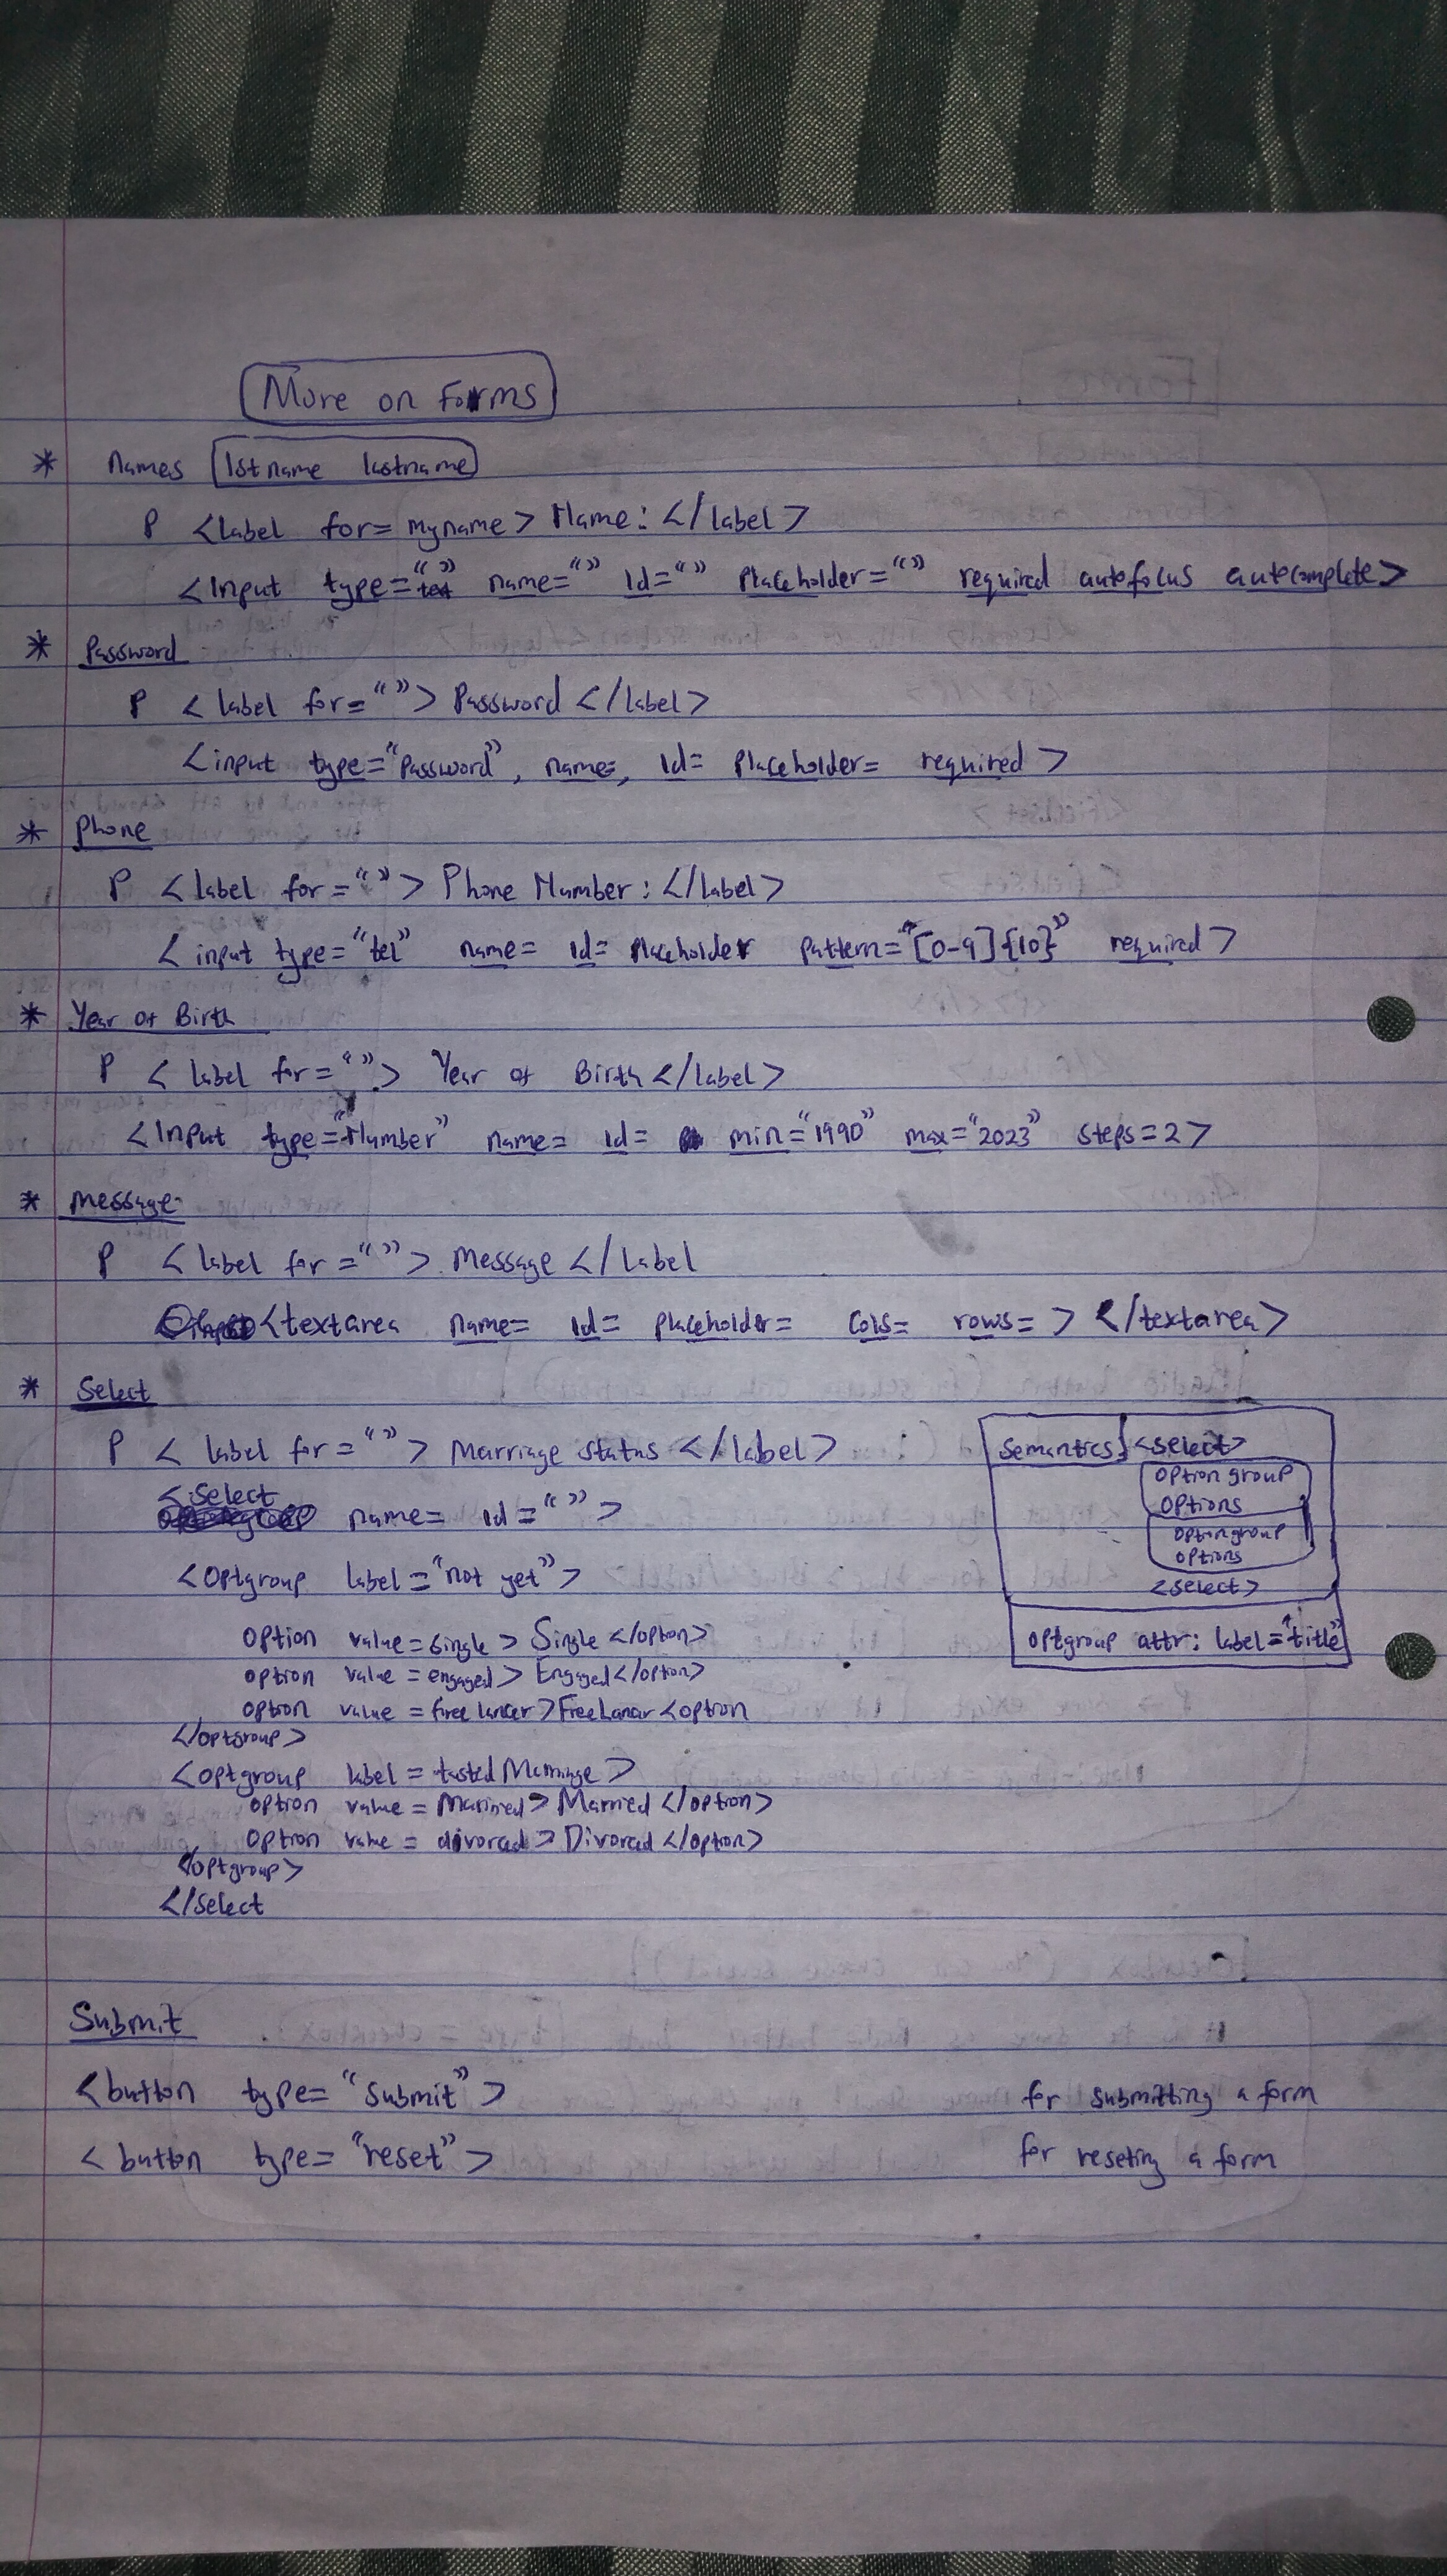 More on forms
* Names 1st name lastname
P <label for= myname> Name: </label>
<Input type="text" name="" Id="" Placeholder="" required autofocus autocomplete>
* Password
P <label for=""> Password </label>
<input type="Password", name=, Id= Placeholder= required>
* Phone
P <label for=""> Phone Number: </label>
<input type="tel" name= Id= Placeholder pattern="[0-9]{10}" required>
* Year of Birth
P <label for=""> Year of Birth </label>
<Input type="Number" name= Id= min="1990" max="2023" steps=2>
* Message
P <label for=""> Message </label
<textarea name= Id= Placeholder= Cols= rows= > </textarea>
* Select
P <label for=""> Marriage status </label>
<select name= id="">
<Optgroup label="not yet">
Option value=single> Single </opton>
option value = engaged> Engaged </option>
option value = free lancer>FreeLancer <option
</optgroup>
<optgroup label = tasted Marriage>
option value = Married> Married </option>
Option value = divorced> Divorced </option>
</optgroup>
</select
Semantics <select>
option group
options
optiongroup
options
<select>
optgroup attr: label="title"
Submit
<button type="Submit"> for submitting a form
<button type="reset"> for reseting a form